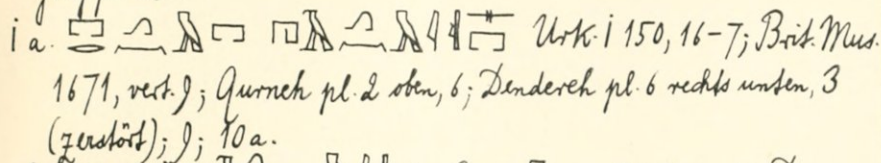 i a. Urk. I 150, 16-7; Brit. Mus.
1671, vert. 9; Gurneh pl. 2 oben, 6; Dendereh pl. 6 rechts unten, 3
(zerstört); 9; 10a.